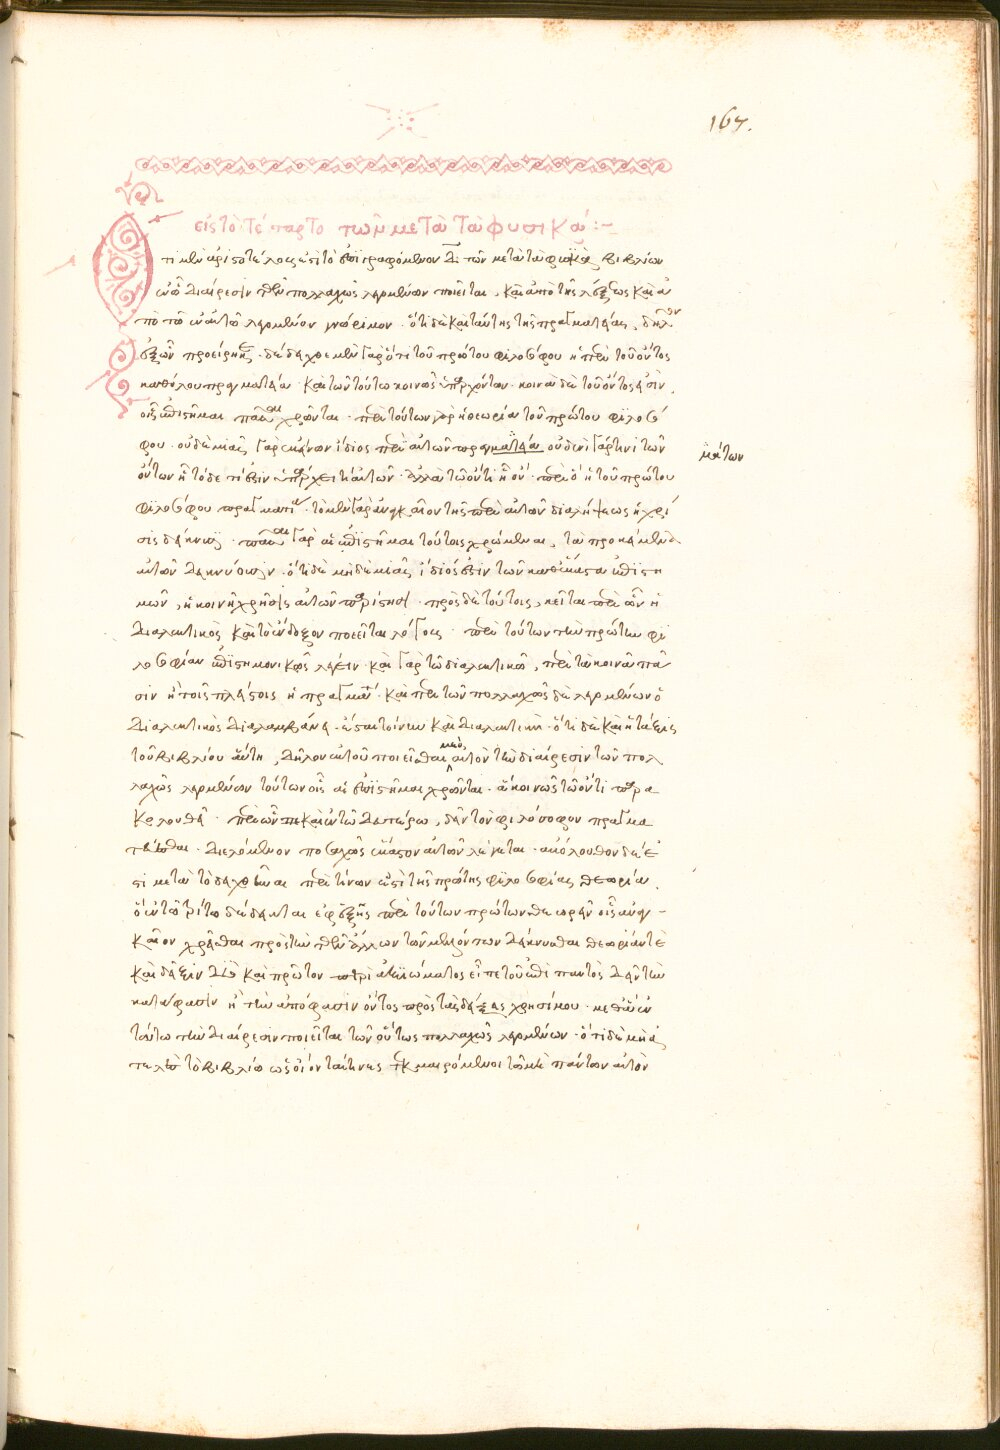 167.
εἰς τὸ τέταρτο τῶν μετὰ τὰ φυσικά :–
τι μὲν ἀριστοτέλους ἐστὶ τὸ ἐπιγραφόμενον Δ̅ τῶν μετὰ τὰ φυσικὰ βιβλίων
ἐν ᾧ διαίρεσιν τῶν πολλαχῶς λεγομένων ποιεῖται, καὶ ἀπὸ τῆς λέξεως καὶ ἀ
πὸ τῶν ἐν αὐτῷ λεγομένων γνώριμον · ὅτι δὲ καὶ ταύτης τῆς πραγματείας, δῆλον
ἐξ ὧν προείρηκε · δέδεικται μὲν γὰρ ὅτι τοῦ πρώτου φιλοσόφου ἡ περὶ τοῦ ὄντος
καθόλου πραγματεία · καὶ τῶν τούτῳ κοινῶς ὑπαρχόντων · κοινὰ δὲ τοῦ ὄντος ἐστὶν
οἷς ἐπιστῆμαι πᾶσαι χρῶνται · περὶ τούτων γὰρ ἡ θεωρία τοῦ πρώτου φιλοσό
φου · οὐδεμιᾶς γὰρ ἐκείνων ἴδιος περὶ αὐτῶν πραγματεία οὐδενὶ γάρ τινι τῶν
μάτων
ὄντων ᾗ τόδε τί ἐστιν ὑπάρχει τι αὐτῶν · ἀλλὰ τῷ ὄντι ᾗ ὄν · περὶ ὃ ἡ τοῦ πρώτου
φιλοσόφου πραγματεία · τὸ μὲν γὰρ ἀναγκαῖον τῆς περὶ αὐτῶν διαλήψεως ἡ χρῆ
σις δείκνυσι · πᾶσαι γὰρ αἱ ἐπιστῆμαι τούτοις χρώμεναι, τὰ προκείμενα
αὐταῖς δεικνύουσιν · ὅτι δὲ μηδεμιᾶς ἴδιός ἐστιν τῶν καθ' ἕκαστα ἐπιστη
μῶν, ἡ κοινὴ χρῆσις αὐτῶν παρίστησι · πρὸς δὲ τούτοις, κεῖται περὶ ὧν ἡ
διαλεκτικὸς κατὰ τὸ ἔνδοξον ποιεῖται λόγους · περὶ τούτων τὴν πρώτην φι
λοσοφίαν ἐπιστημονικῶς λέγειν · καὶ γὰρ τῷ διαλεκτικῷ, περὶ τὰ κοινὰ πᾶ
σιν ἢ τοῖς πλείστοις ἡ πραγματεία · καὶ περὶ τῶν πολλαχῶς δὲ λεγομένων ὁ
διαλεκτικὸς διαλαμβάνει · ἔσται τοίνυν καὶ διαλεκτική · ὅτι δὲ καὶ ἡ τάξις
τοῦ βιβλίου αὕτη, δῆλον ἐκ τοῦ ποιεῖσθαι μὲν αὐτὸν τὴν διαίρεσιν τῶν πολ
λαχῶς λεγομένων τούτων οἷς αἱ ἐπιστῆμαι χρῶνται · ἃ κοινῶς τῷ ὄντι παρα
κολουθεῖ · περὶ ὧν καὶ ἐν τῷ δευτέρῳ, δεῖν τὸν φιλόσοφον πραγμα
τεύεσθαι · διελόμενον ποσαχῶς ἕκαστον αὐτῶν λέγεται · ἀκόλουθον δέ ἐ
στι μετὰ τὸ δειχθῆναι περὶ τίνων ἐστὶ τῆς πρώτης φιλοσοφίας θεωρία,
ὃ ἐν τῷ τρίτῳ δέδεικται ἐφεξῆς περὶ τούτων πρώτων θεωρεῖν οἷς ἀναγ –
καῖον χρῆσθαι πρὸς τὴν τῶν ἄλλων τῶν μελλόντων δείκνυσθαι θεωρίαν τε
καὶ δεῖξιν διὸ καὶ πρῶτον περὶ ἀξιώματος εἶπε τοῦ ἐπὶ παντὸς δεῖν τὴν
κατάφασιν ἢ τὴν ἀπόφασιν ὄντος πρὸς τὰς δείξεις χρησίμου · μεθ' ὃ ἐν
τούτῳ τὴν διαίρεσιν ποιεῖται τῶν οὕτως πολλαχῶς λεγομένων · ὅτι δὲ μὴ ἀ
τελὲς τὸ βιβλίον ὡς οἴονταί τινες τεκμαιρόμενοι τῷ μὴ πάντων αὐτὸν